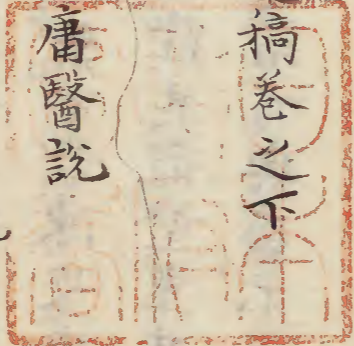 稿卷之下
庸醫說